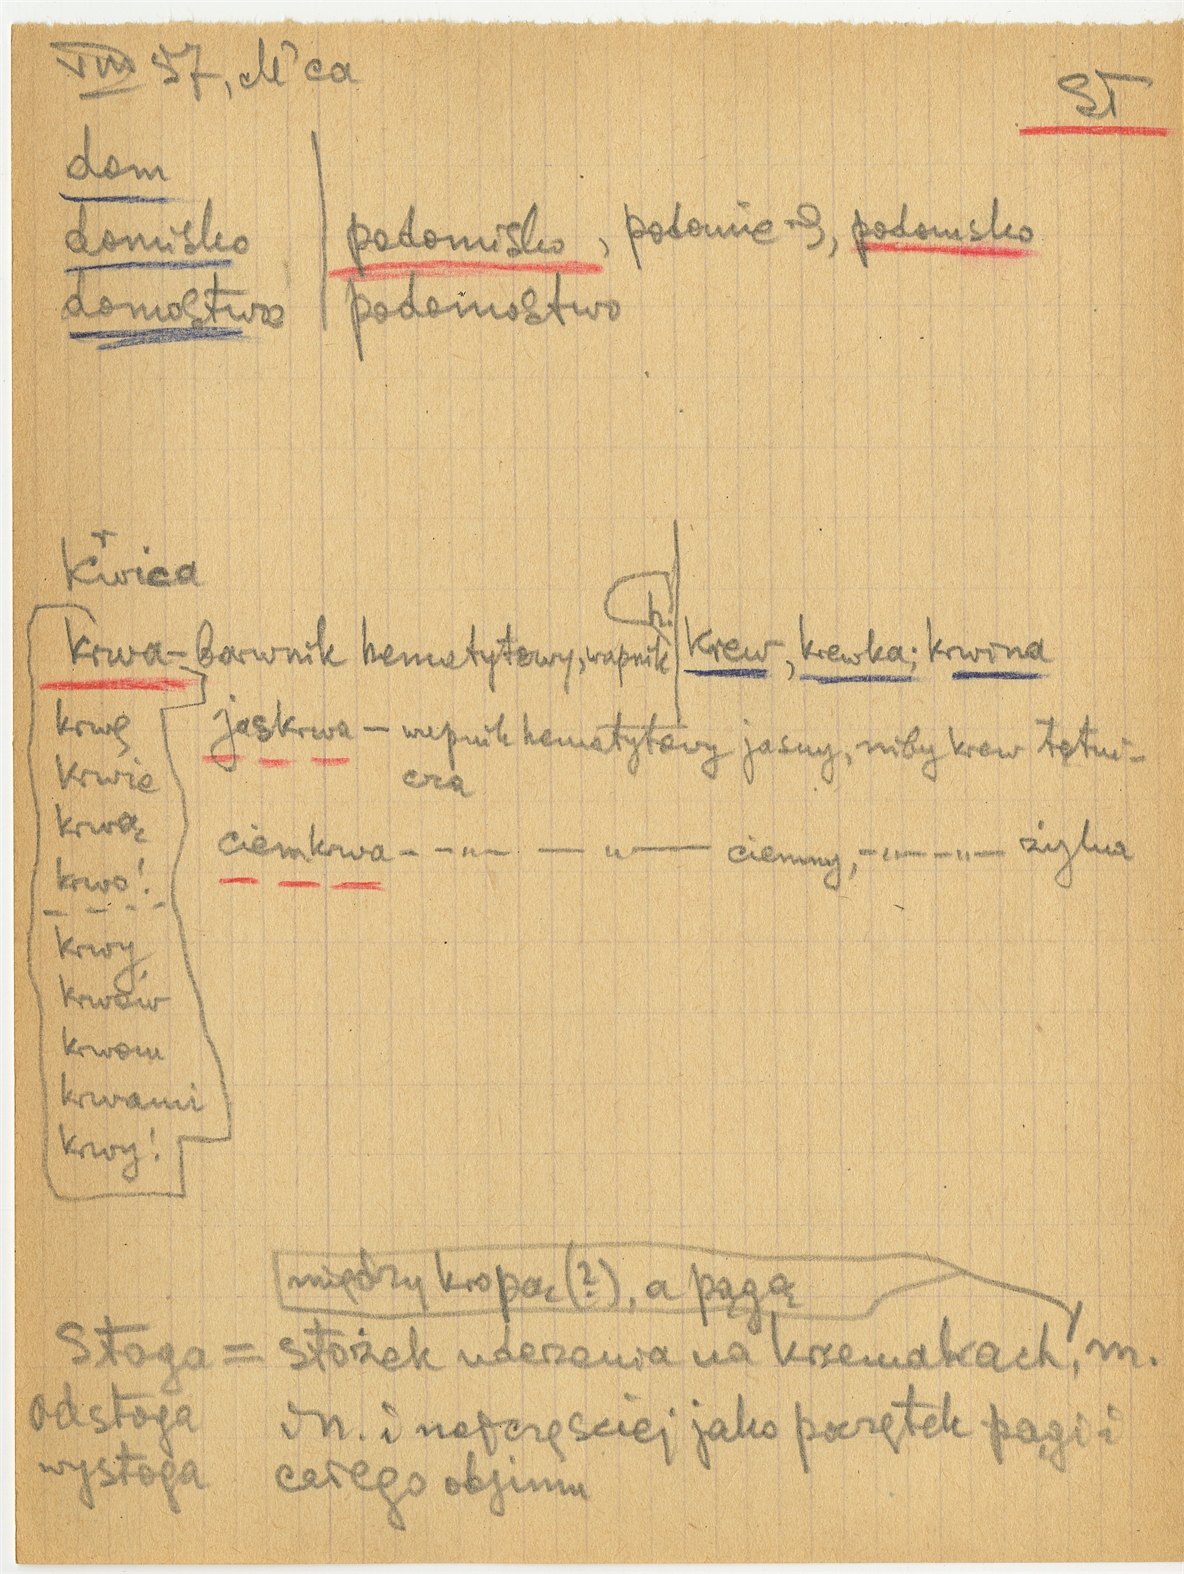 VIII 57, M'ca
ST
dom
domisko | podomisko, podomie, podomsko
domostwo | podomostwo
Krwica
h.
krwa - barwnik hematytowy, wapnik | krew, krewka; krwina
krwę
jaskrwa — wapnik hematytowy jasny, niby krew tętni-
cza
krwie
krwą
ciemkrwa - - „ - — „ — ciemny, - „ - - „ - żylna
krwo!
krwy
krwów
krwom
krwami
krwy!
między kropą (?), a pągą
Stoga = stożek uderzenia na krzemakach, m.
odstoga in. i najczęściej jako początek pągi i
wystoga całego objimu